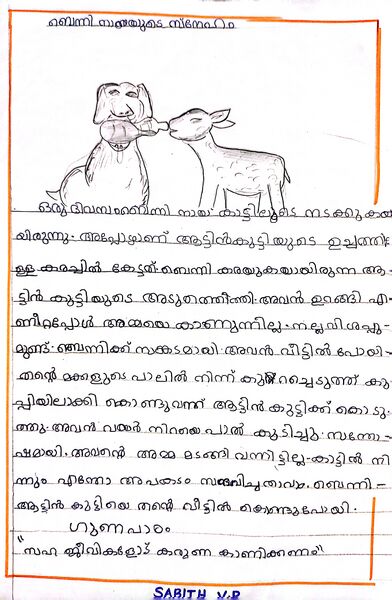 ബെന്നി നായയുടെ സ്നേഹം
ഒരു ദിവസം ബെന്നി നായ കാട്ടിലൂടെ നടക്കുകയാ
യിരുന്നു. അപ്പോഴാണ് ആട്ടിൻകുട്ടിയുടെ ഉച്ചത്തി
ള്ള കരച്ചിൽ കേട്ടത്. ബെന്നി കരയുകയായിരുന്ന ആ-
ട്ടിൻ കുട്ടിയുടെ അടുത്തെത്തി. അവൻ ഉറങ്ങി എ-
ണീറ്റപ്പോൾ അമ്മയെ കാണുന്നില്ല. നല്ല വിശപ്പു-
മുണ്ട്. ബെന്നിക്ക് സങ്കടമായി. അവൻ വീട്ടിൽ പോയി-
തന്റെ മക്കളുടെ പാലിൽ നിന്ന് കുറച്ചെടുത്ത് കു
പ്പിയിലാക്കി കൊണ്ടുവന്ന് ആട്ടിൻ കുട്ടിക്ക് കൊടു-
ത്തു. അവൻ വയർ നിറയെ പാൽ കുടിച്ചു. സന്തോ-
ഷമായി. അവന്റെ അമ്മ മടങ്ങി വന്നിട്ടില്ല. കാട്ടിൽ നി
ന്നും എന്തോ അപകടം സംഭവിച്ചതാവാം. ബെന്നി-
ആട്ടിൻ കുട്ടിയെ തന്റെ വീട്ടിൽ കൊണ്ടുപോയി.
ഗുണപാഠം
"സഹ ജീവികളോട് കരുണ കാണിക്കണം"
SABITH V.P